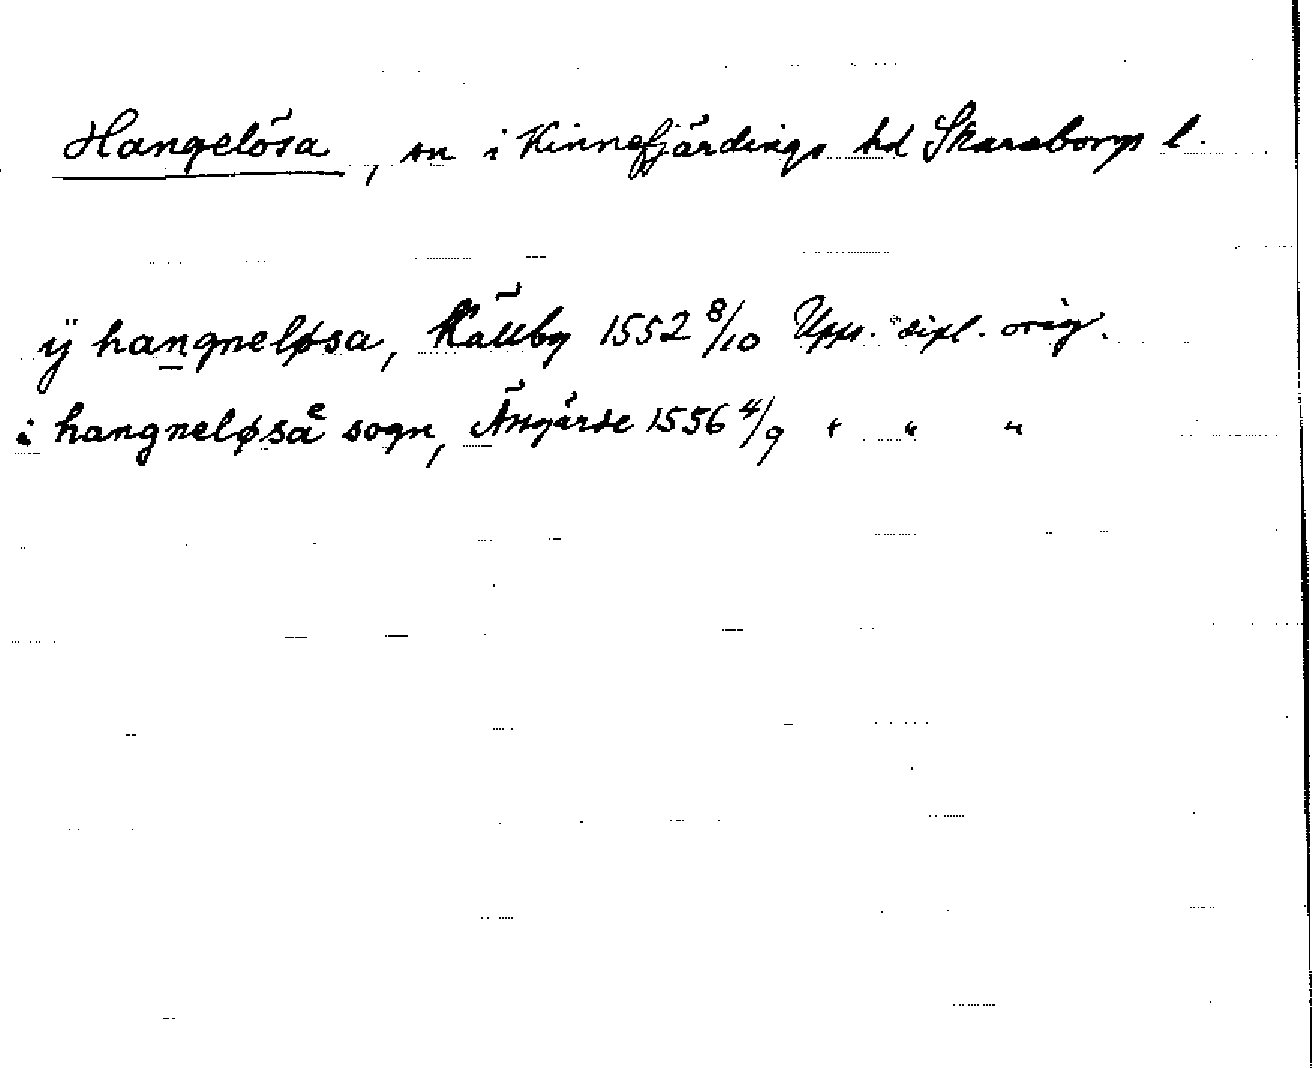 Hangelösa, sn i Kinnefjärdings hd Skaraborgs l.
ÿ hangneløsa, Källby 1552 8/10 Upps. dipl. orig.
i hangneløsaͤ sogn, Årsgärde 1556 4/9 " " "